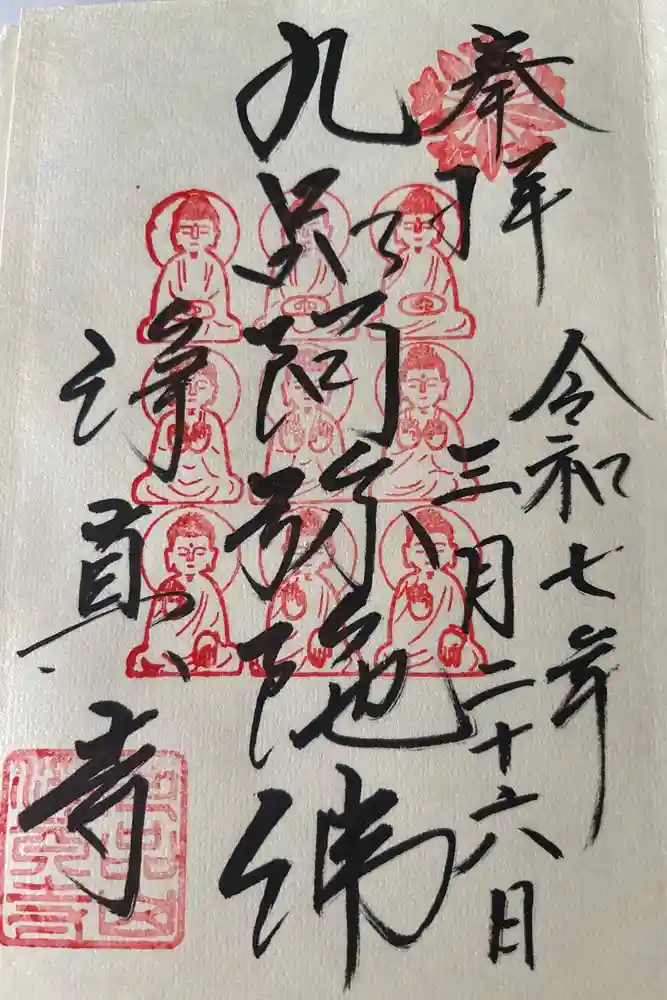 奉拝
令和七年
三月二十六日
九品阿弥陀佛
浄真寺